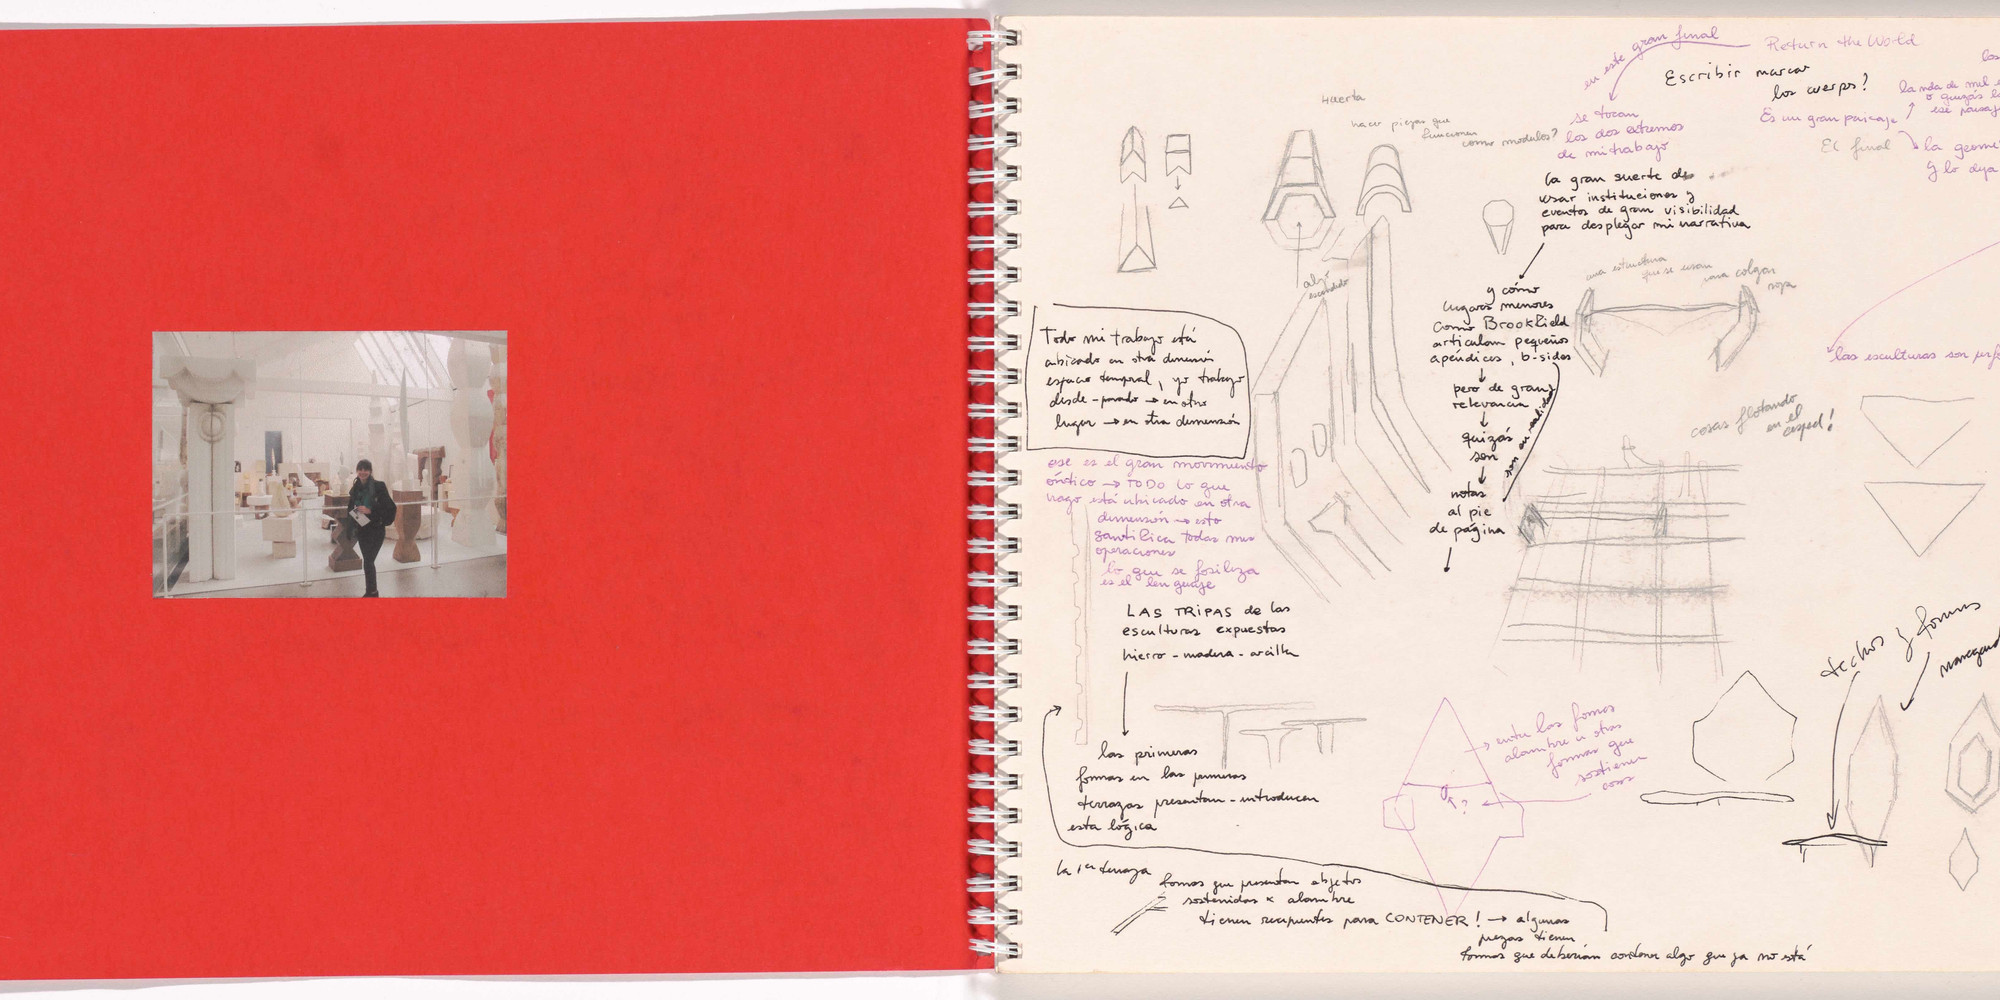 en este gran final
Return the World
Escribir marcar
los cuerpos?
los
la vida de mil
o quizás
ese paisaj
Es un gran paisaje
El final
la geome
y lo deja
se tocan
los dos extremos
de mi trabajo
Huerta
hacer piezas que
funcionen
como modulos?
La gran suerte de
usar instituciones y
eventos de gran visibilidad
para desplegar mi narrativa
y cómo
lugares menores
como Brookfield
articulan pequeños
apéndices, b-sides
pero de gran
relevancia
quizás
son
notas
al pie
de página
son en realidad
algo
escondido
una estructura
que se usan
para colgar
ropa
las esculturas son perf
cosas flotando
en el
césped!
Todo mi trabajo está
ubicado en otra dimensión
espacio temporal, yo trabajo
desde - parado → en otro
lugar → en otra dimensión
ese es el gran movimiento
óntico → TODO lo que
hago está ubicado en otra
dimensión → esto
santifica todas mis
operaciones
lo que se fosiliza
es el lenguaje
LAS TRIPAS de las
esculturas expuestas
hierro - madera - arcilla
las primeras
formas en las primeras
terrazas presentan - introducen
esta lógica
la 1ra terraza
formas que presentan objetos
sostenidos x alambre
tienen recipientes para CONTENER! → algunas
piezas tienen
formas que deberían contener algo que ya no está
entre las formas
alambre u otras
formas que
sostienen
cosas
?
techos y formas